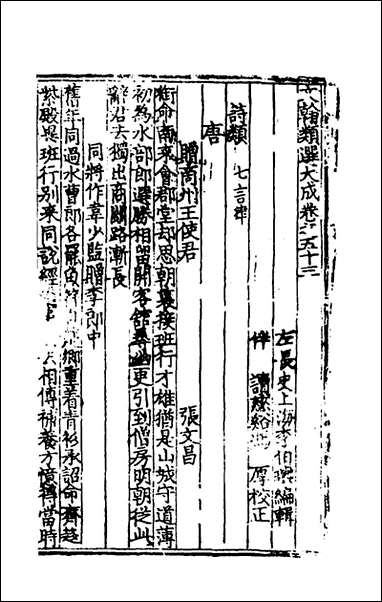 文翰類選大成卷之五十三
左長史上海李伯璵編輯
伴讀慈谿馮 厚校正
詩類 七言律
唐
贈商州王使君 張文昌
銜命南來會郡堂却思朝裏接班行才雄猶是山城守道薄
初為水部郎選勝相留開客館尋幽更引到僧房明朝從此
辭君去獨出商關路漸長
同將作韋少監贈李郎中
舊年同過水曹郎各罷魚符 鄉重着青衫承詔命齊趨
紫殿異班行別來同說經 相傳補養方憶得當時